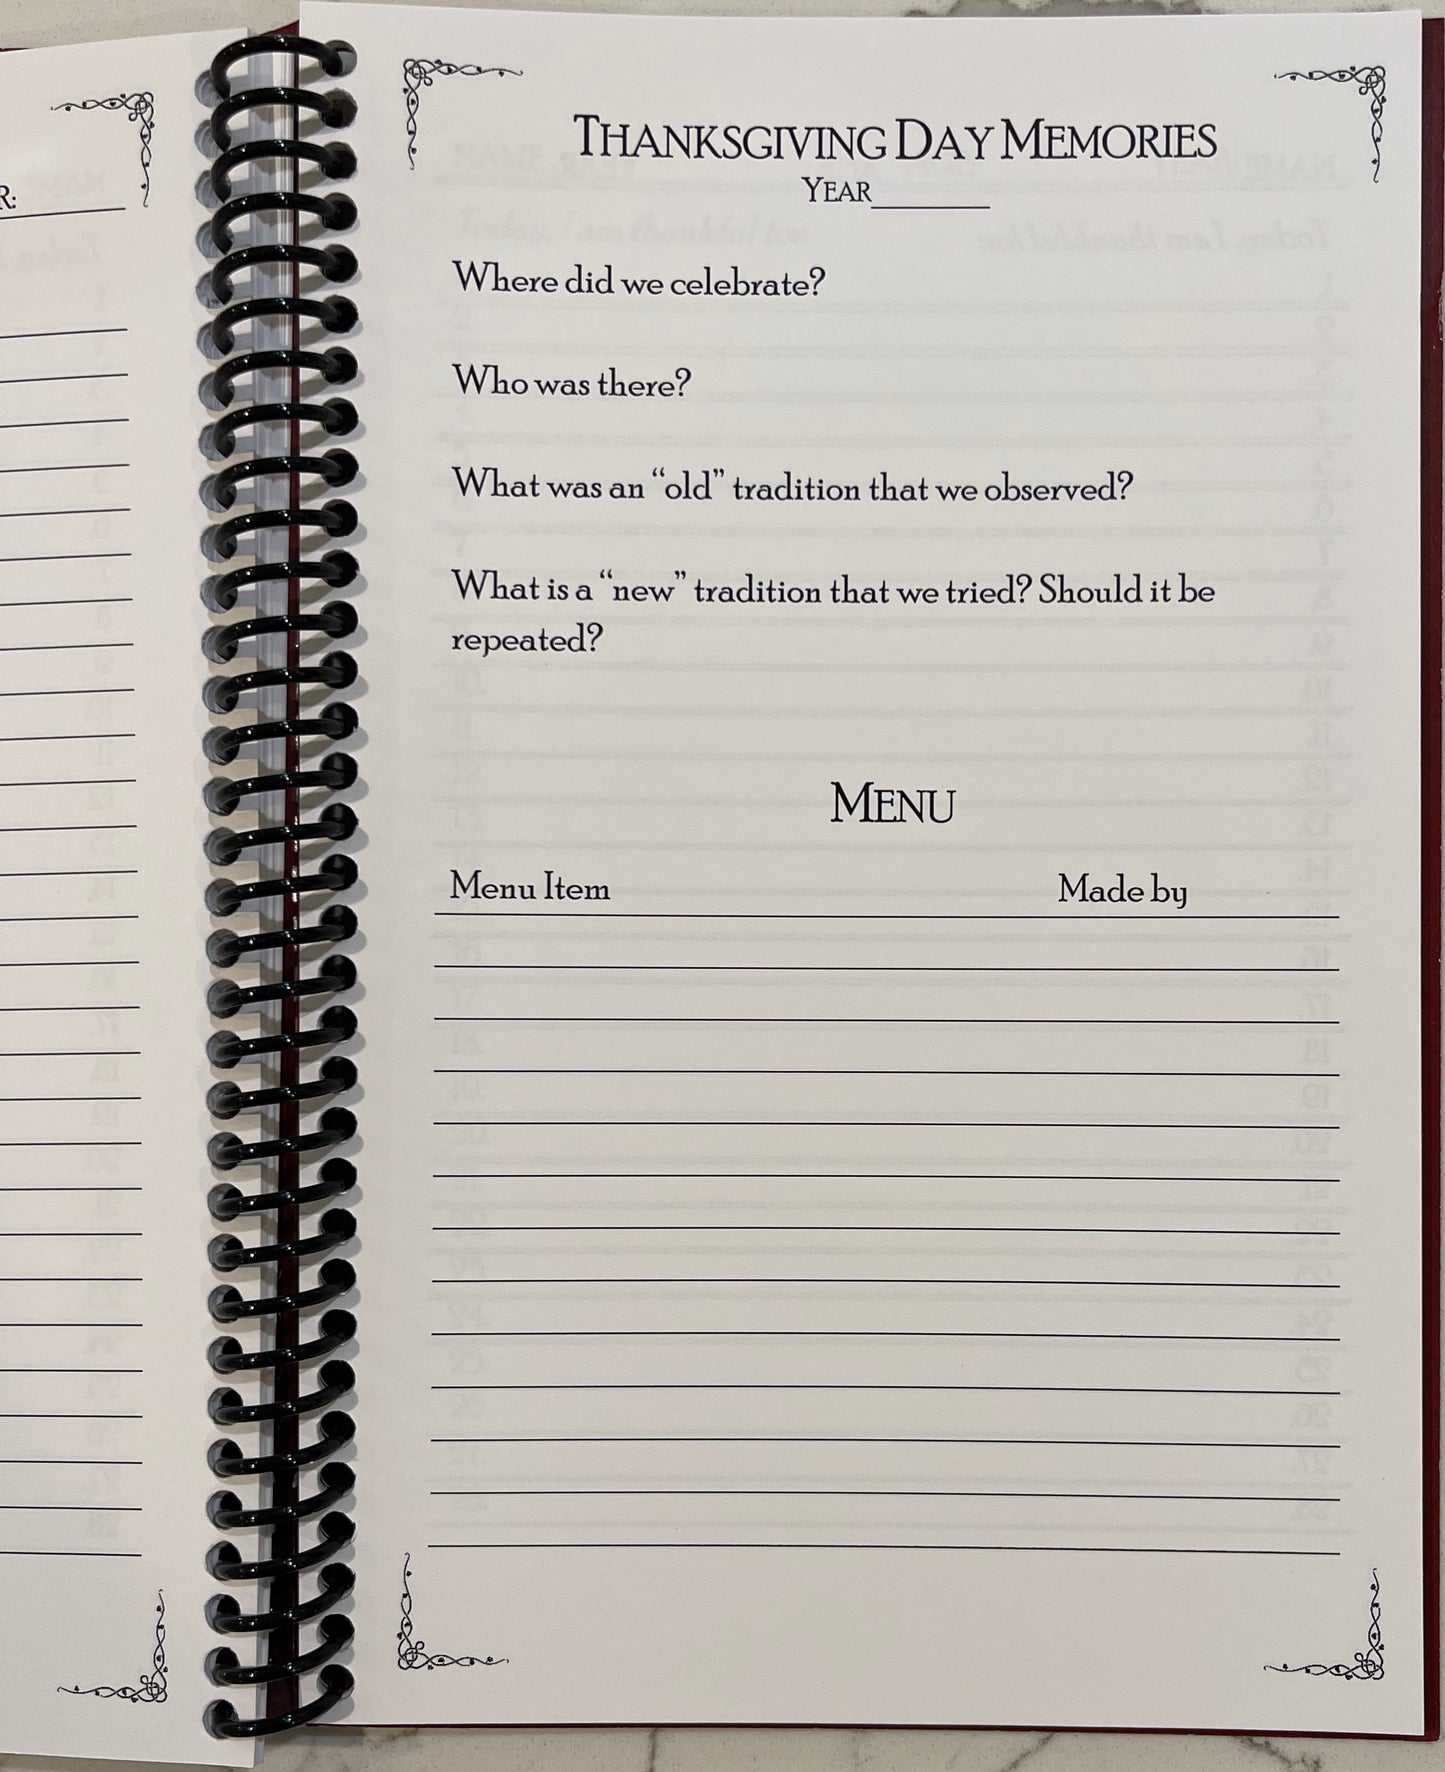 R:
THANKSGIVING DAY MEMORIES
YEAR
Where did we celebrate?
Who was there?
What was an “old” tradition that we observed?
What is a “new” tradition that we tried? Should it be
repeated?
MENU
Menu Item Made by